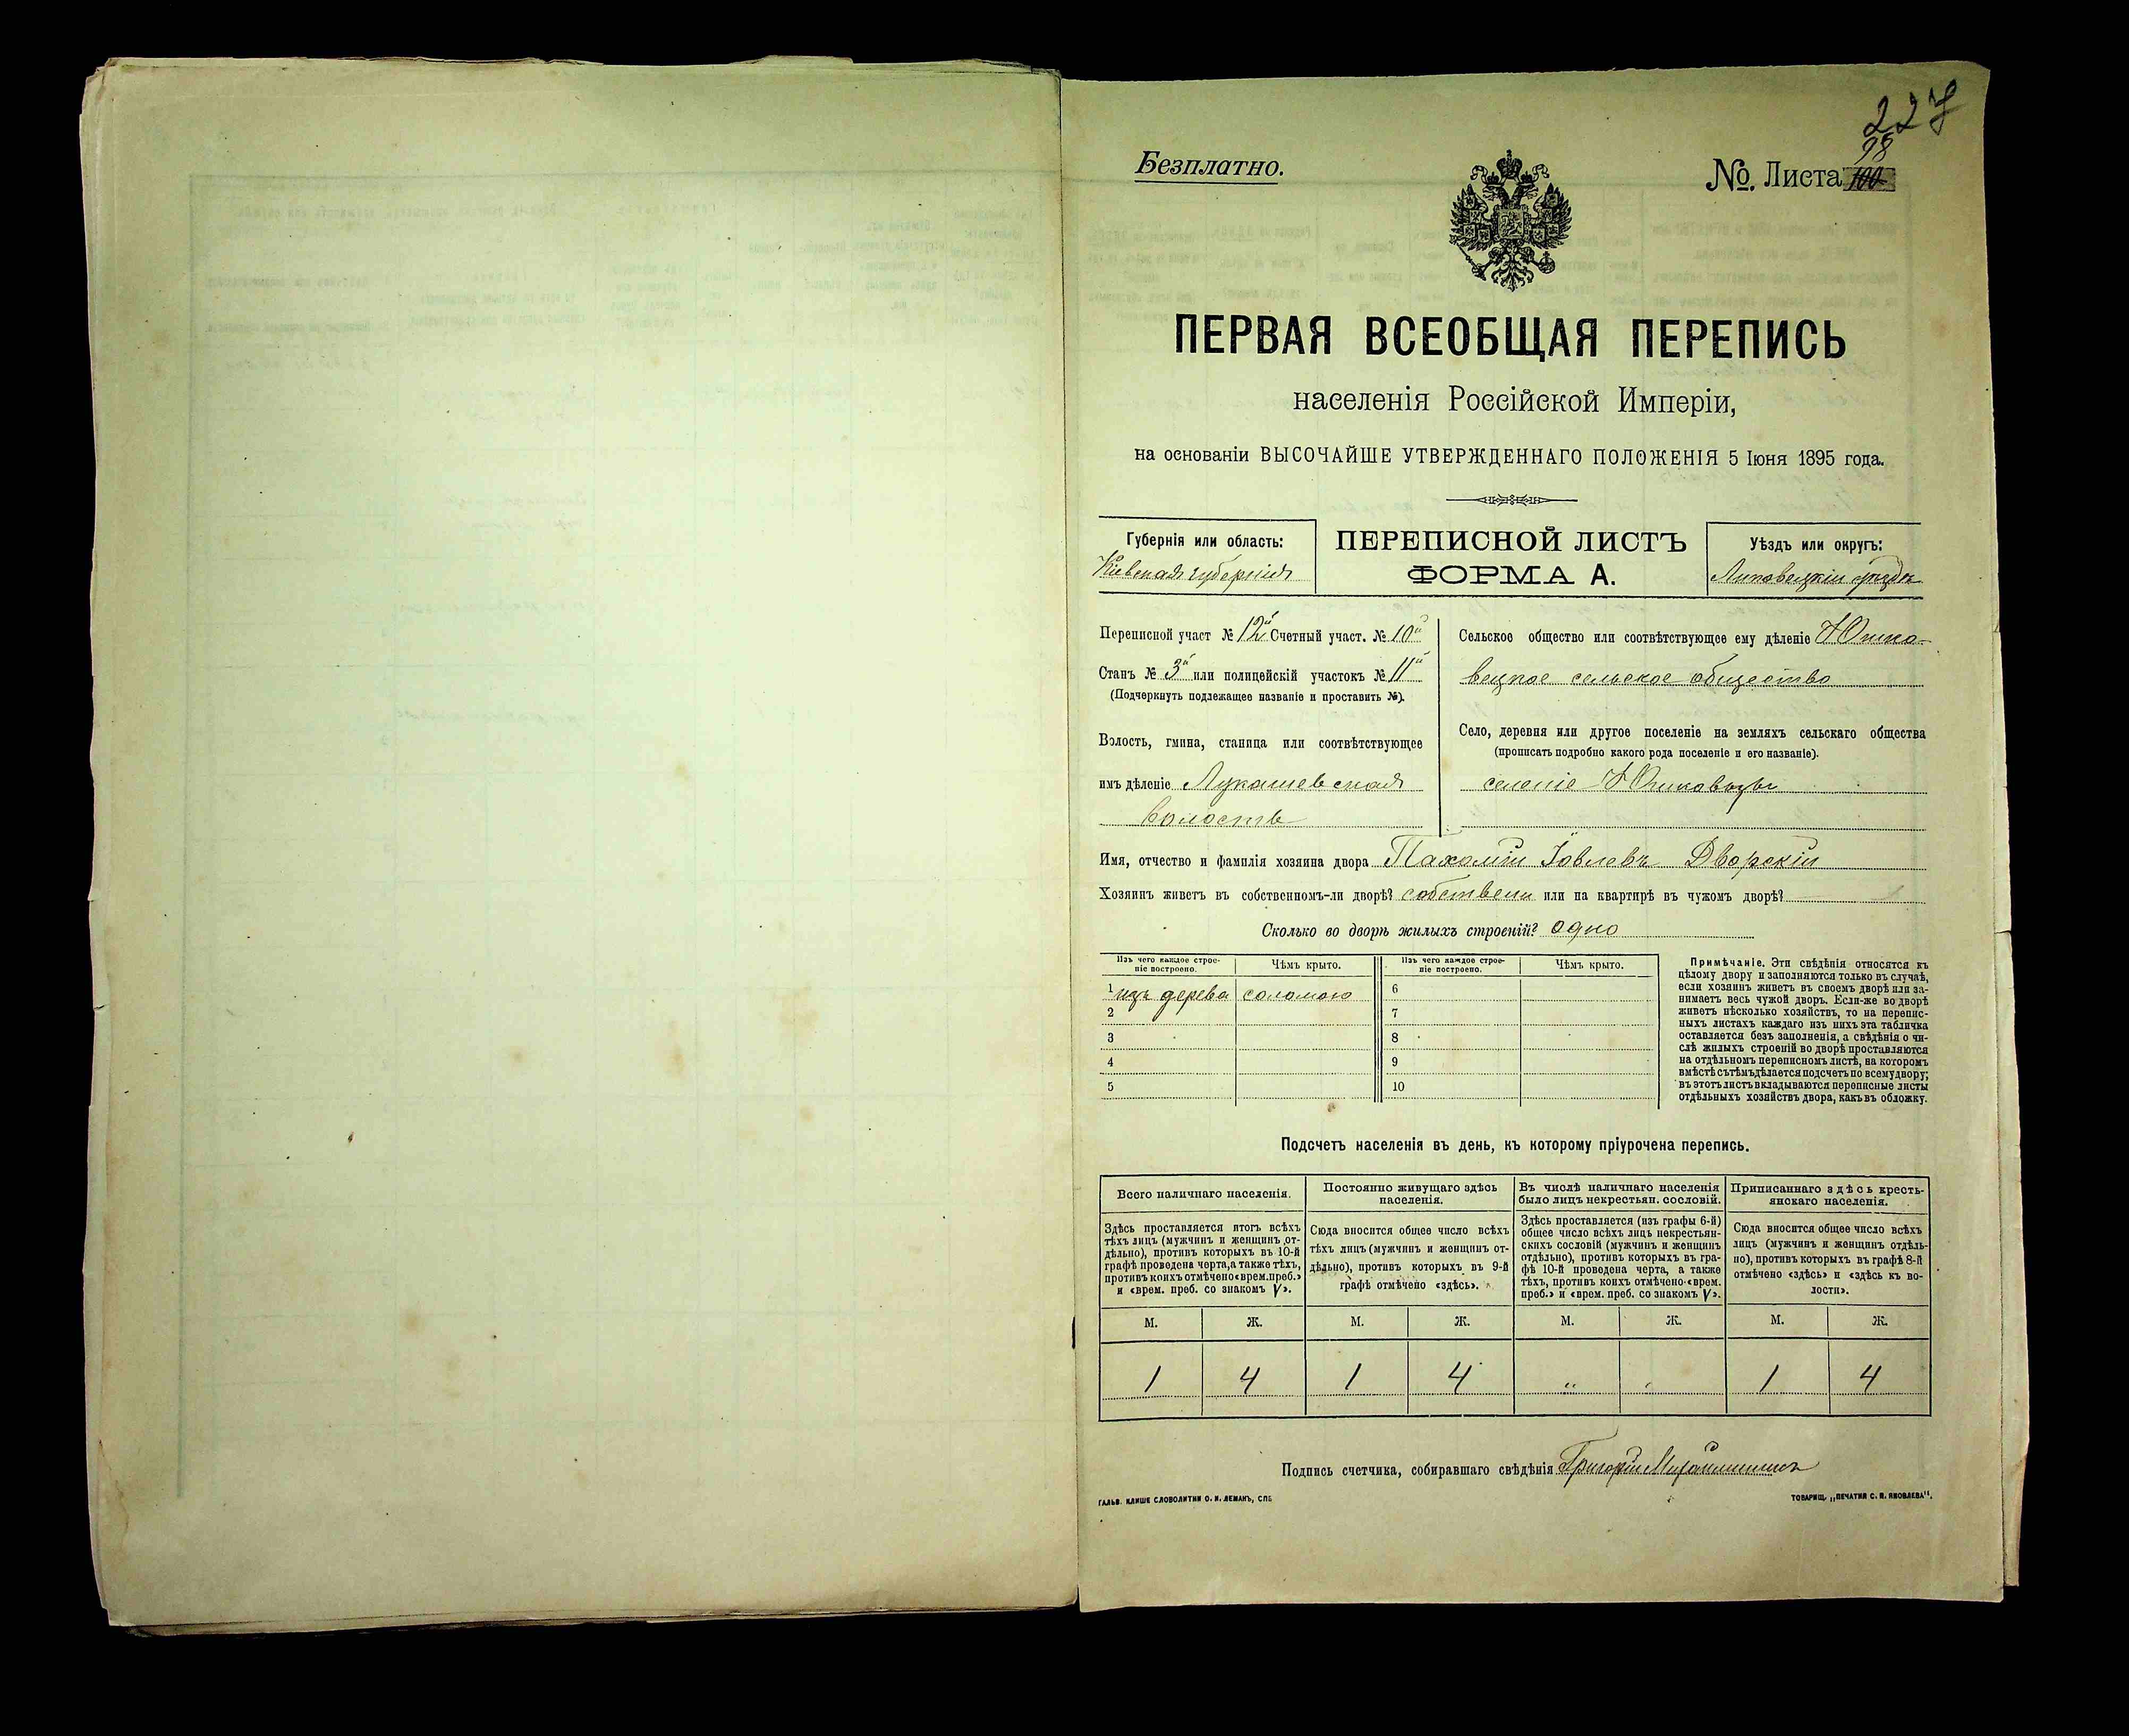 227
Безплатно.
98
№. Листа 100
ПЕРВАЯ ВСЕОБЩАЯ ПЕРЕПИСЬ
населенія Россійской Имперіи,
на основаніи ВЫСОЧАЙШЕ УТВЕРЖДЕННАГО ПОЛОЖЕНІЯ 5 Іюня 1895 года.
Губернія или область:
Кіевская губернія
ПЕРЕПИСНОЙ ЛИСТЪ
ФОРМА А.
Уѣздъ или округъ:
Липовецкій уѣздъ
Переписной участ № 12й Счетный участ. № 10й
Станъ № 3й или полицейскій участокъ № 11й
(Подчеркнуть подлежащее названіе и проставить №).
Волость, гмина, станица или соотвѣтствующее
имъ дѣленіе Лукашевская
волость
Сельское общество или соотвѣтствующее ему дѣленіе Юшко-
вецкое сельское общество
Село, деревня или другое поселеніе на земляхъ сельскаго общества
(прописать подробно какого рода поселеніе и его названіе).
селеніе Юшковцы
Имя, отчество и фамилія хозяина двора Пахомій Іовлевъ Дворскій
Хозяинъ живетъ въ собственномъ-ли дворѣ? собствени или на квартирѣ въ чужомъ дворѣ?
Сколько во дворѣ жилыхъ строеній? одно
Изъ чего каждое строе-
ніе построено.
Чѣмъ крыто.
Изъ чего каждое строе-
ніе построено.
Чѣмъ крыто.
1 изъ дерева соломою 6
2 7
3 8
4 9
5 10
Примѣчаніе. Эти свѣдѣнія относятся къ
цѣлому двору и заполняются только въ случаѣ,
если хозяинъ живетъ въ своемъ дворѣ или за-
нимаетъ весь чужой дворъ. Если-же во дворѣ
живетъ нѣсколько хозяйствъ, то на перепис-
ныхъ листахъ каждаго изъ нихъ эта табличка
оставляется безъ заполненія, а свѣдѣнія о чи-
слѣ жилыхъ строеній во дворѣ проставляются
на отдѣльномъ переписномъ листѣ, на которомъ
вмѣстѣ съ тѣмъ дѣлается подсчетъ по всему двору;
въ этотъ листъ вкладываются переписные листы
отдѣльныхъ хозяйствъ двора, какъ въ обложку.
Подсчетъ населенія въ день, къ которому пріурочена перепись.
Всего наличнаго населенія.
Здѣсь проставляется итогъ всѣхъ
тѣхъ лицъ (мужчинъ и женщинъ от-
дѣльно), противъ которыхъ въ 10-й
графѣ проведена черта, а также тѣхъ,
противъ коихъ отмѣчено «врем. преб.»
и «врем. преб. со знакомъ V».
Постоянно живущаго здѣсь
населенія.
Сюда вносится общее число всѣхъ
тѣхъ лицъ (мужчинъ и женщинъ от-
дѣльно), противъ которыхъ въ 9-й
графѣ отмѣчено «здѣсь».
Въ числѣ наличнаго населенія
было лицъ некрестьян. сословій.
Здѣсь проставляется (изъ графы 6-й)
общее число всѣхъ лицъ некрестьян-
скихъ сословій (мужчинъ и женщинъ
отдѣльно), противъ которыхъ въ гра-
фѣ 10-й проведена черта, а также
тѣхъ, противъ коихъ отмѣчено «врем.
преб.» и «врем. преб. со знакомъ V».
Приписаннаго здѣсь кресть-
янскаго населенія.
Сюда вносится общее число всѣхъ
лицъ (мужчинъ и женщинъ отдѣль-
но), противъ которыхъ въ графѣ 8-й
отмѣчено «здѣсь» и «здѣсь къ во-
лости».
М. Ж. М. Ж. М. Ж. М. Ж.
1 4 1 4 " " 1 4
Подпись счетчика, собиравшаго свѣдѣнія Григорій
ГАЛЬВ. КЛИШЕ СЛОВОЛИТНИ О. И. ЛЕМАНЪ, СПБ
ТОВАРИЩ. „ПЕЧАТНЯ С. П. ЯКОВЛЕВА".